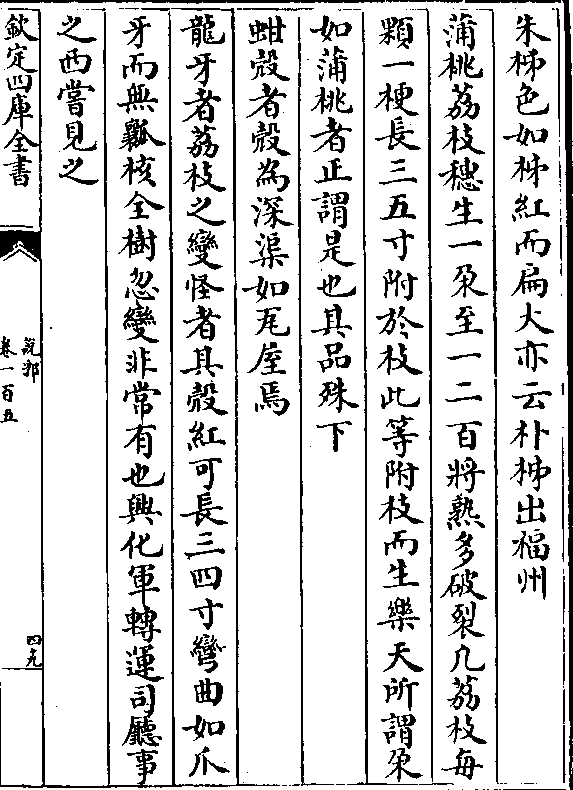 朱柹色如柹紅而扁大亦云朴柹出福州
蒲桃荔枝穗生一朶至一二百將熟多破裂凡荔枝每
顆一梗長三五寸附於枝此等附枝而生樂天所謂朶
如蒲桃者正謂是也其品殊下
蚶殼者殼為深渠如瓦屋焉
龍牙者荔枝之變怪者其殼紅可長三四寸彎曲如爪
牙而無瓤核全樹忽變非常有也興化軍轉運司廳事
之西嘗見之
欽定四庫全書
說郛
卷一百五
四九